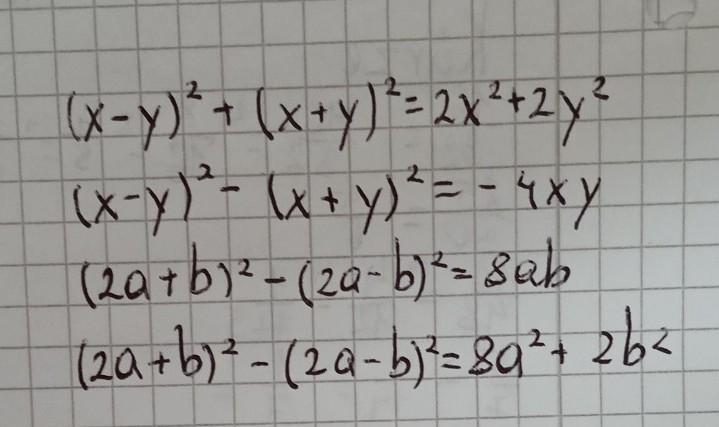 (x-y)² + (x+y)² = 2x² + 2y²
(x-y)² - (x+y)² = - 4xy
(2a+b)² - (2a-b)² = 8ab
(2a+b)² - (2a-b)² = 8a² + 2b²